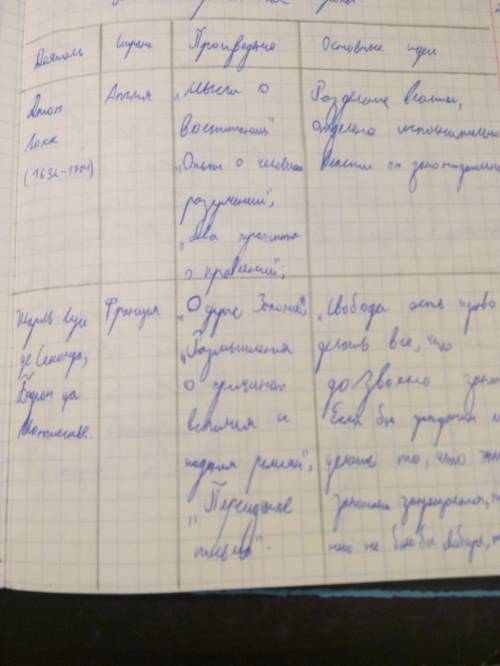 Деятель Страна Произведение Основные идеи
Джон Англия „Мысли о Разделение власти,
Локк воспитании" отделение исполнительно
(1632-1704) „Опыт о человеч власти от законодательно
разумении",
„Два трактата
о правлении",
Шарль Луи Франция „О духе Законов", „Свобода есть право
де Секонда, „Размышления делать все, что
Барон да о причинах дозволено зако
Монтескье. величия и Если бы гражданин
падения римлян", делать то, что эти
„Персидские законами запрещается,
письма". него не было бы свободы,